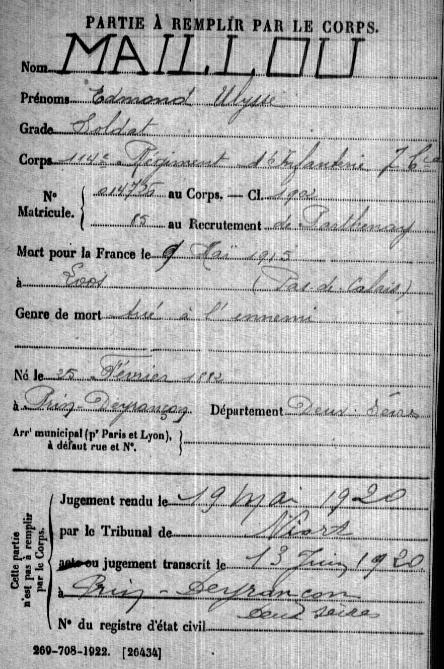 PARTIE À REMPLIR PAR LE CORPS.
Nom MAILLOU
Prénoms Edmond Ulysse
Grade Soldat
Corps 114e Régiment d'Infanterie 7 Cie
N° Matricule. { 014755 au Corps. — Cl. 1902
85 au Recrutement de Parthenay
Mort pour la France le 9 Mai 1915
à Loos (Pas de Calais)
Genre de mort tué à l'ennemi
Né le 25 Février 1882
à Prin-Deyrançon Département Deux-Sèvres
Arrt municipal (pr Paris et Lyon),
à défaut rue et N°.
Cette partie n'est pas à remplir par le Corps.
Jugement rendu le 19 mai 1920
par le Tribunal de Niort
acte ou jugement transcrit le 13 Juin 1920
à Prin-Deyrançon
Deux Sèvres
N° du registre d'état civil
269-708-1922. [26434]